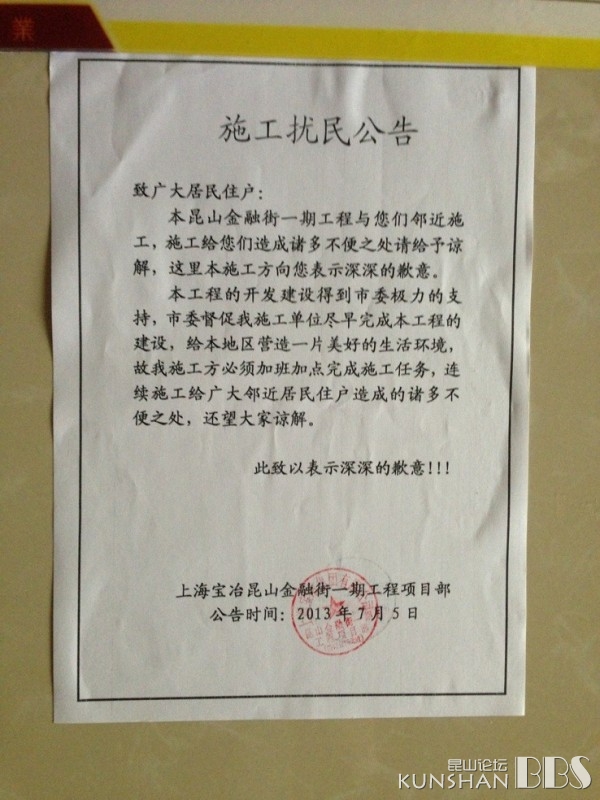 業
施工扰民公告
致广大居民住户：
本昆山金融街一期工程与您们邻近施
工，施工给您们造成诸多不便之处请给予谅
解，这里本施工方向您表示深深的歉意。
本工程的开发建设得到市委极力的支
持，市委督促我施工单位尽早完成本工程的
建设，给本地区营造一片美好的生活环境，
故我施工方必须加班加点完成施工任务，连
续施工给广大邻近居民住户造成的诸多不
便之处，还望大家谅解。
此致以表示深深的歉意!!!
上海宝冶昆山金融街一期工程项目部
公告时间：2013年7月5日
昆山论坛
KUNSHAN BBS